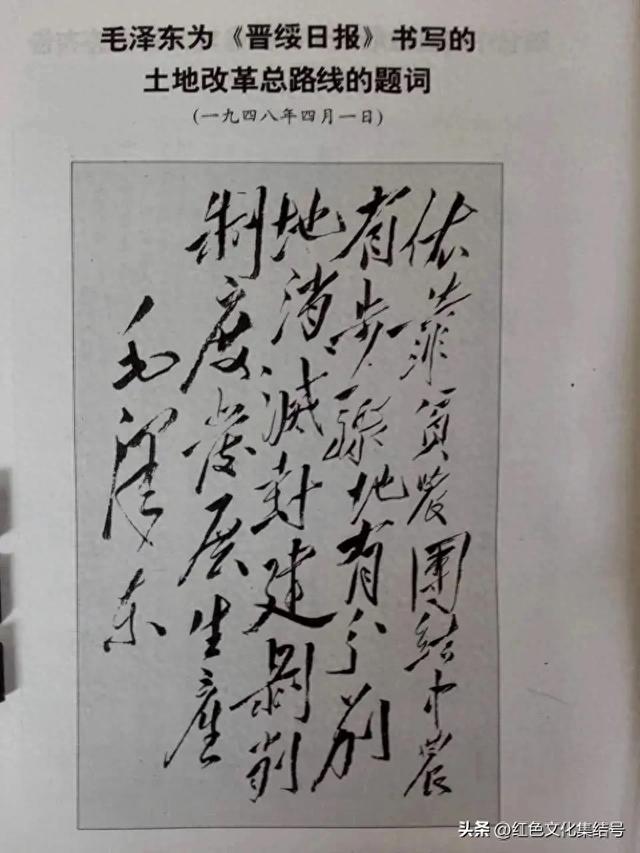 毛泽东为《晋绥日报》书写的
土地改革总路线的题词
(一九四八年四月一日)
依靠貧農團結中農
有步驟地有分别
地消滅封建剝削
制度發展生產
毛澤东
头条 @红色文化集结号